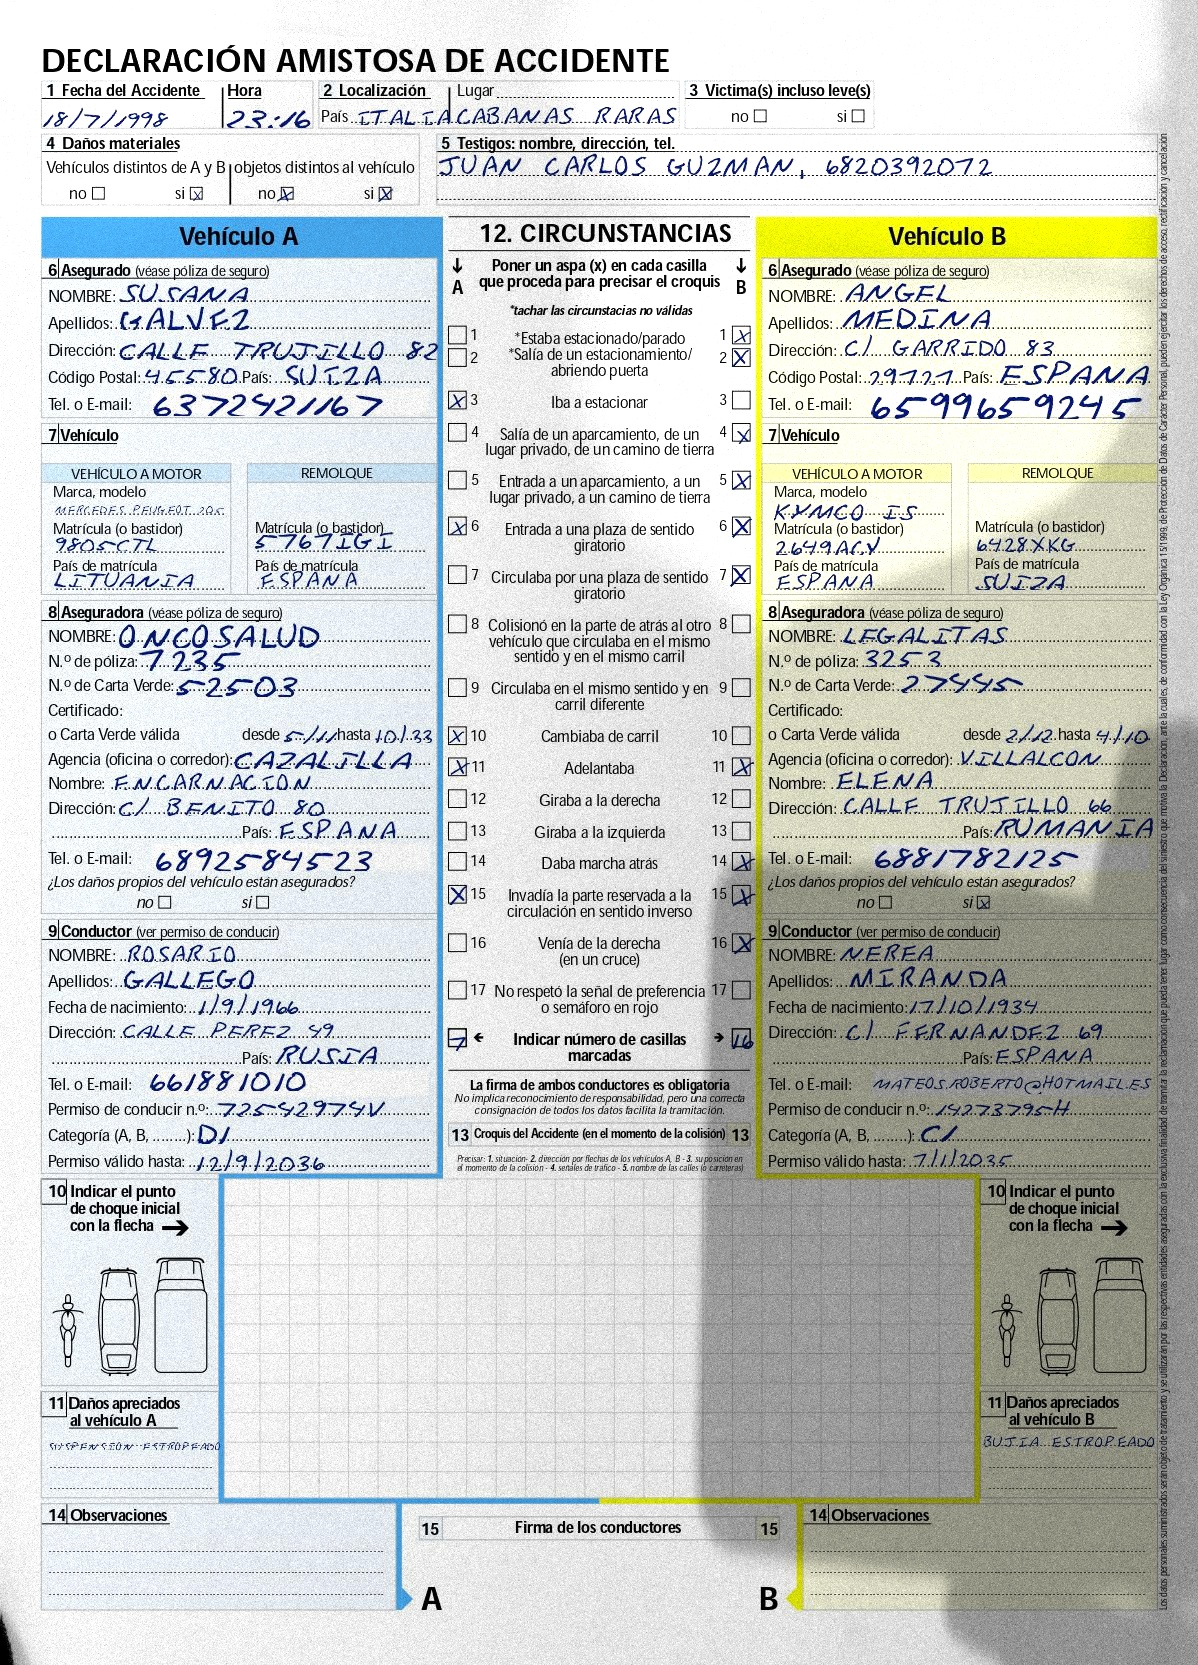 DECLARACIÓN AMISTOSA DE ACCIDENTE
1 Fecha del Accidente Hora 2 Localización Lugar 3 Victima(s) incluso leve(s)
18/7/1998 23:16 País ITALIA CABANAS RARAS no si
4 Daños materiales
Vehículos distintos de A y B objetos distintos al vehículo
no si no si
5 Testigos: nombre, dirección, tel.
JUAN CARLOS GUZMAN, 6820392072
Vehículo A
6 Asegurado (véase póliza de seguro)
NOMBRE: SUSANA
Apellidos: GALVEZ
Dirección: CALLE TRUJILLO 82
Código Postal: 45580 País: SUIZA
Tel. o E-mail: 6372421167
7 Vehículo
VEHÍCULO A MOTOR REMOLQUE
Marca, modelo
MERCEDES PEUGEOT 205
Matrícula (o bastidor) Matrícula (o bastidor)
9805CTL 5767IGI
País de matrícula País de matrícula
LITUANIA ESPANA
8 Aseguradora (véase póliza de seguro)
NOMBRE: ONCOSALUD
N.º de póliza: 7235
N.º de Carta Verde: 52503
Certificado:
o Carta Verde válida desde 5/11 hasta 10/33
Agencia (oficina o corredor): CAZALILLA
Nombre: ENCARNACION
Dirección: C/ BENITO 80
País: ESPANA
Tel. o E-mail: 6892584523
¿Los daños propios del vehículo están asegurados?
no si
9 Conductor (ver permiso de conducir)
NOMBRE: ROSARIO
Apellidos: GALLEGO
Fecha de nacimiento: 1/9/1966
Dirección: CALLE PEREZ 49
País: RUSIA
Tel. o E-mail: 661881010
Permiso de conducir n.º: 72542974V
Categoría (A, B, ........): D1
Permiso válido hasta: 12/9/2036
12. CIRCUNSTANCIAS
A Poner un aspa (x) en cada casilla que proceda para precisar el croquis B
*tachar las circunstacias no válidas
1 *Estaba estacionado/parado 1
2 *Salía de un estacionamiento/ 2
abriendo puerta
3 Iba a estacionar 3
4 Salía de un aparcamiento, de un 4
lugar privado, de un camino de tierra
5 Entrada a un aparcamiento, a un 5
lugar privado, a un camino de tierra
6 Entrada a una plaza de sentido 6
giratorio
7 Circulaba por una plaza de sentido 7
giratorio
8 Colisionó en la parte de atrás al otro 8
vehículo que circulaba en el mismo
sentido y en el mismo carril
9 Circulaba en el mismo sentido y en 9
carril diferente
10 Cambiaba de carril 10
11 Adelantaba 11
12 Giraba a la derecha 12
13 Giraba a la izquierda 13
14 Daba marcha atrás 14
15 Invadía la parte reservada a la 15
circulación en sentido inverso
16 Venía de la derecha 16
(en un cruce)
17 No respetó la señal de preferencia 17
o semáforo en rojo
7 Indicar número de casillas 16
marcadas
La firma de ambos conductores es obligatoria
No implica reconocimiento de responsabilidad, pero una correcta
consignación de todos los datos facilita la tramitación.
13 Croquis del Accidente (en el momento de la colisión) 13
Precisar: 1. situación- 2. dirección por flechas de los vehículos A, B - 3. su posición en
el momento de la colisión - 4. señales de tráfico - 5. nombre de las calles (o carreteras)
Vehículo B
6 Asegurado (véase póliza de seguro)
NOMBRE: ANGEL
Apellidos: MEDINA
Dirección: C/ GARRIDO 83
Código Postal: 29727 País: ESPANA
Tel. o E-mail: 6599659245
7 Vehículo
VEHÍCULO A MOTOR REMOLQUE
Marca, modelo
KYMCO IS
Matrícula (o bastidor) Matrícula (o bastidor)
2649ACV 6428XKG
País de matrícula País de matrícula
ESPANA SUIZA
8 Aseguradora (véase póliza de seguro)
NOMBRE: LEGALITAS
N.º de póliza: 3253
N.º de Carta Verde: 27445
Certificado:
o Carta Verde válida desde 2/12 hasta 4/10
Agencia (oficina o corredor): VILLALCON
Nombre: ELENA
Dirección: CALLE TRUJILLO 66
País: RUMANIA
Tel. o E-mail: 6881782125
¿Los daños propios del vehículo están asegurados?
no si
9 Conductor (ver permiso de conducir)
NOMBRE: NEREA
Apellidos: MIRANDA
Fecha de nacimiento: 17/10/1934
Dirección: C/ FERNANDEZ 69
País: ESPANA
Tel. o E-mail: MATEOS.ROBERTO@HOTMAIL.ES
Permiso de conducir n.º: 14273795H
Categoría (A, B, ........): C1
Permiso válido hasta: 7/1/2035
10 Indicar el punto
de choque inicial
con la flecha
11 Daños apreciados
al vehículo A
SUSPENSION ESTROPEADO
10 Indicar el punto
de choque inicial
con la flecha
11 Daños apreciados
al vehículo B
BUJIA ESTROPEADO
14 Observaciones
15 Firma de los conductores 15
A B
14 Observaciones